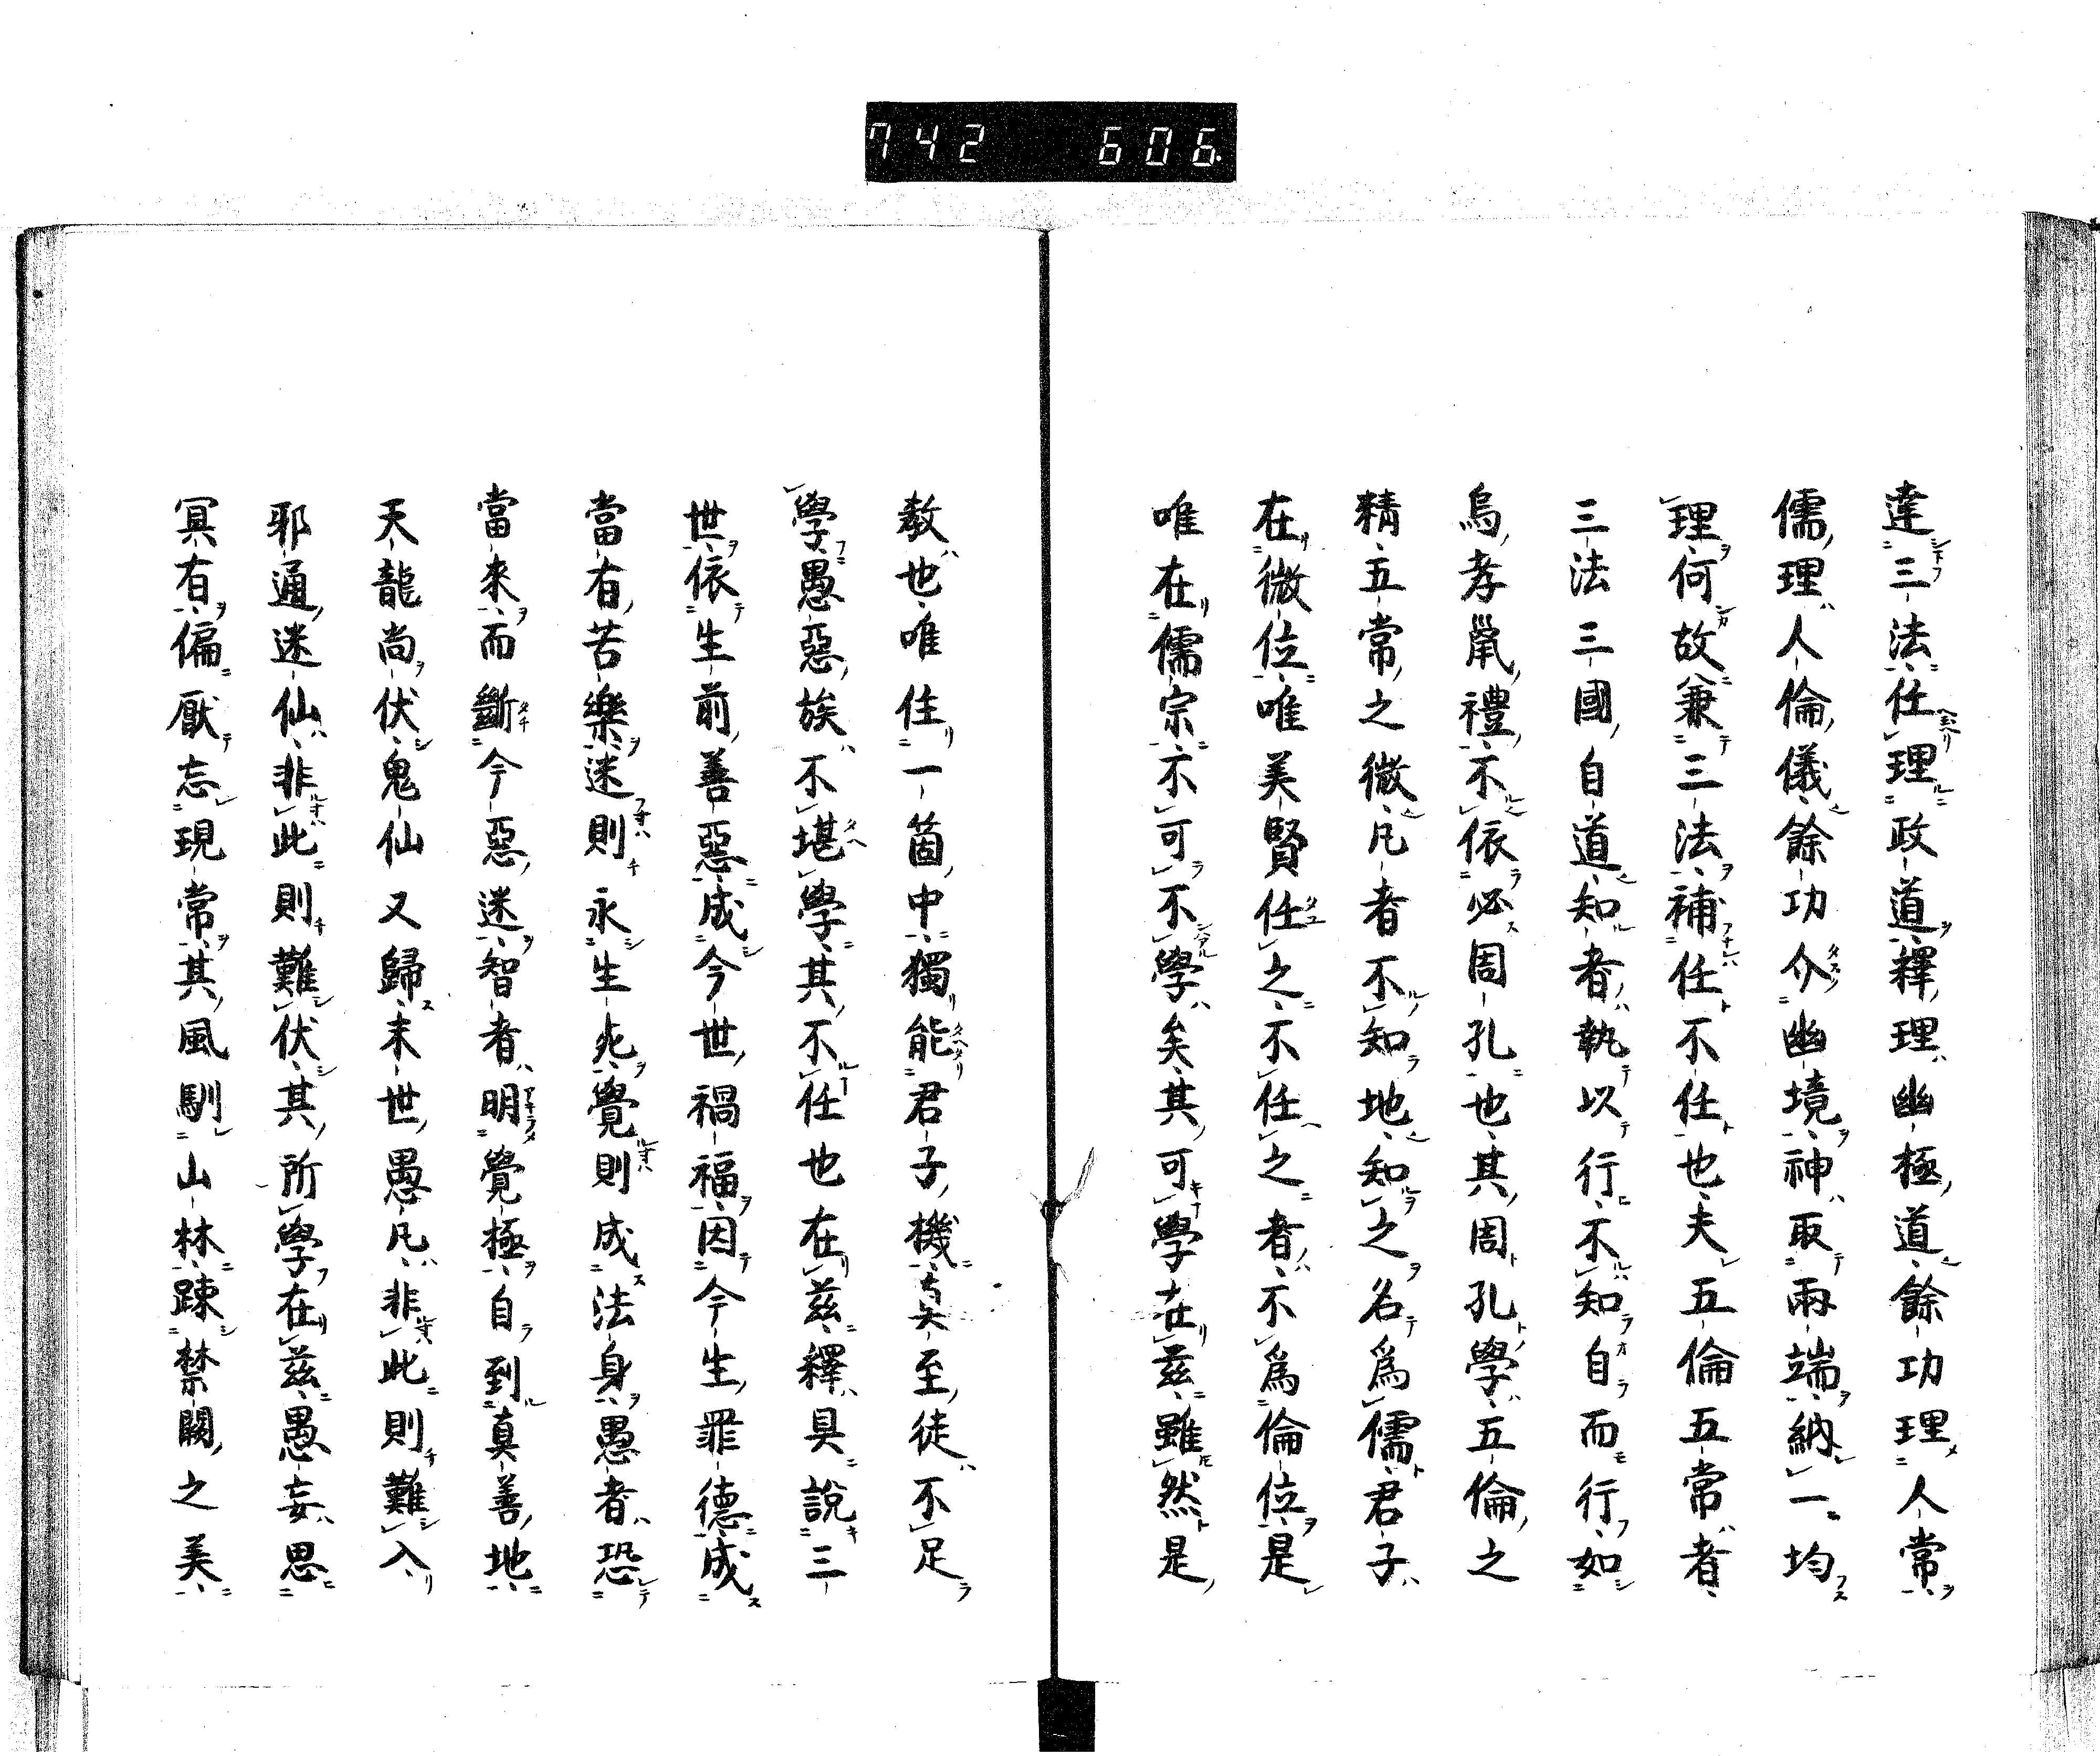 742 606
達三法任理政道釋理幽極道餘功理人常
儒理人倫儀餘功介幽境神取兩端納一均
理何故兼三法補任不任也夫五倫五常者
三法三國自道知者執以行不知自而行如
烏孝鼠禮不依必周孔也其周孔學五倫之
精五常之微凡者不知地知之名爲儒君子
在微位唯美賢任之不任之者不爲倫位是
唯在儒宗不可不學矣其可學在茲雖然是
教也唯住一箇中獨能君子機矣至徒不足
學愚惡族不堪學其不任也在茲釋具說三
世依生前善惡成今世禍福因今生罪德成
當有苦樂迷則永生死覺則成法身愚者恐
當來而斷今惡迷智者明覺極自到真善地
天龍尚伏鬼仙又歸末世愚凡非此則難入
邪通迷仙非此則難伏其所學在茲愚妄思
冥有偏厭忘現常其風馴山林疎禁闕之美